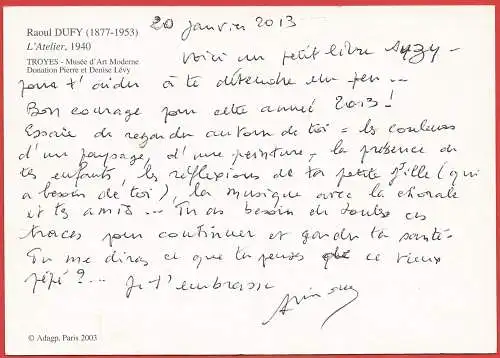 Raoul DUFY (1877-1953)
L'Atelier, 1940
TROYES - Musée d'Art Moderne
Donation Pierre et Denise Lévy
20 janvier 2013
Voici un petit livre
pour t'aider à te détendre un peu...
Bon courage pour cette année 2013!
Essaie de regarder autour de toi = les couleurs
d'un paysage, d'une peinture, la présence de
tes enfants, les réflexions de ta petite fille (qui
a besoin de toi), la musique avec la chorale
et tes amis... Tu as besoin de toutes ces
traces pour continuer et garder ta santé.
Tu me diras ce que tu penses de ce vieux
pépé?... Je t'embrasse
© Adagp, Paris 2003